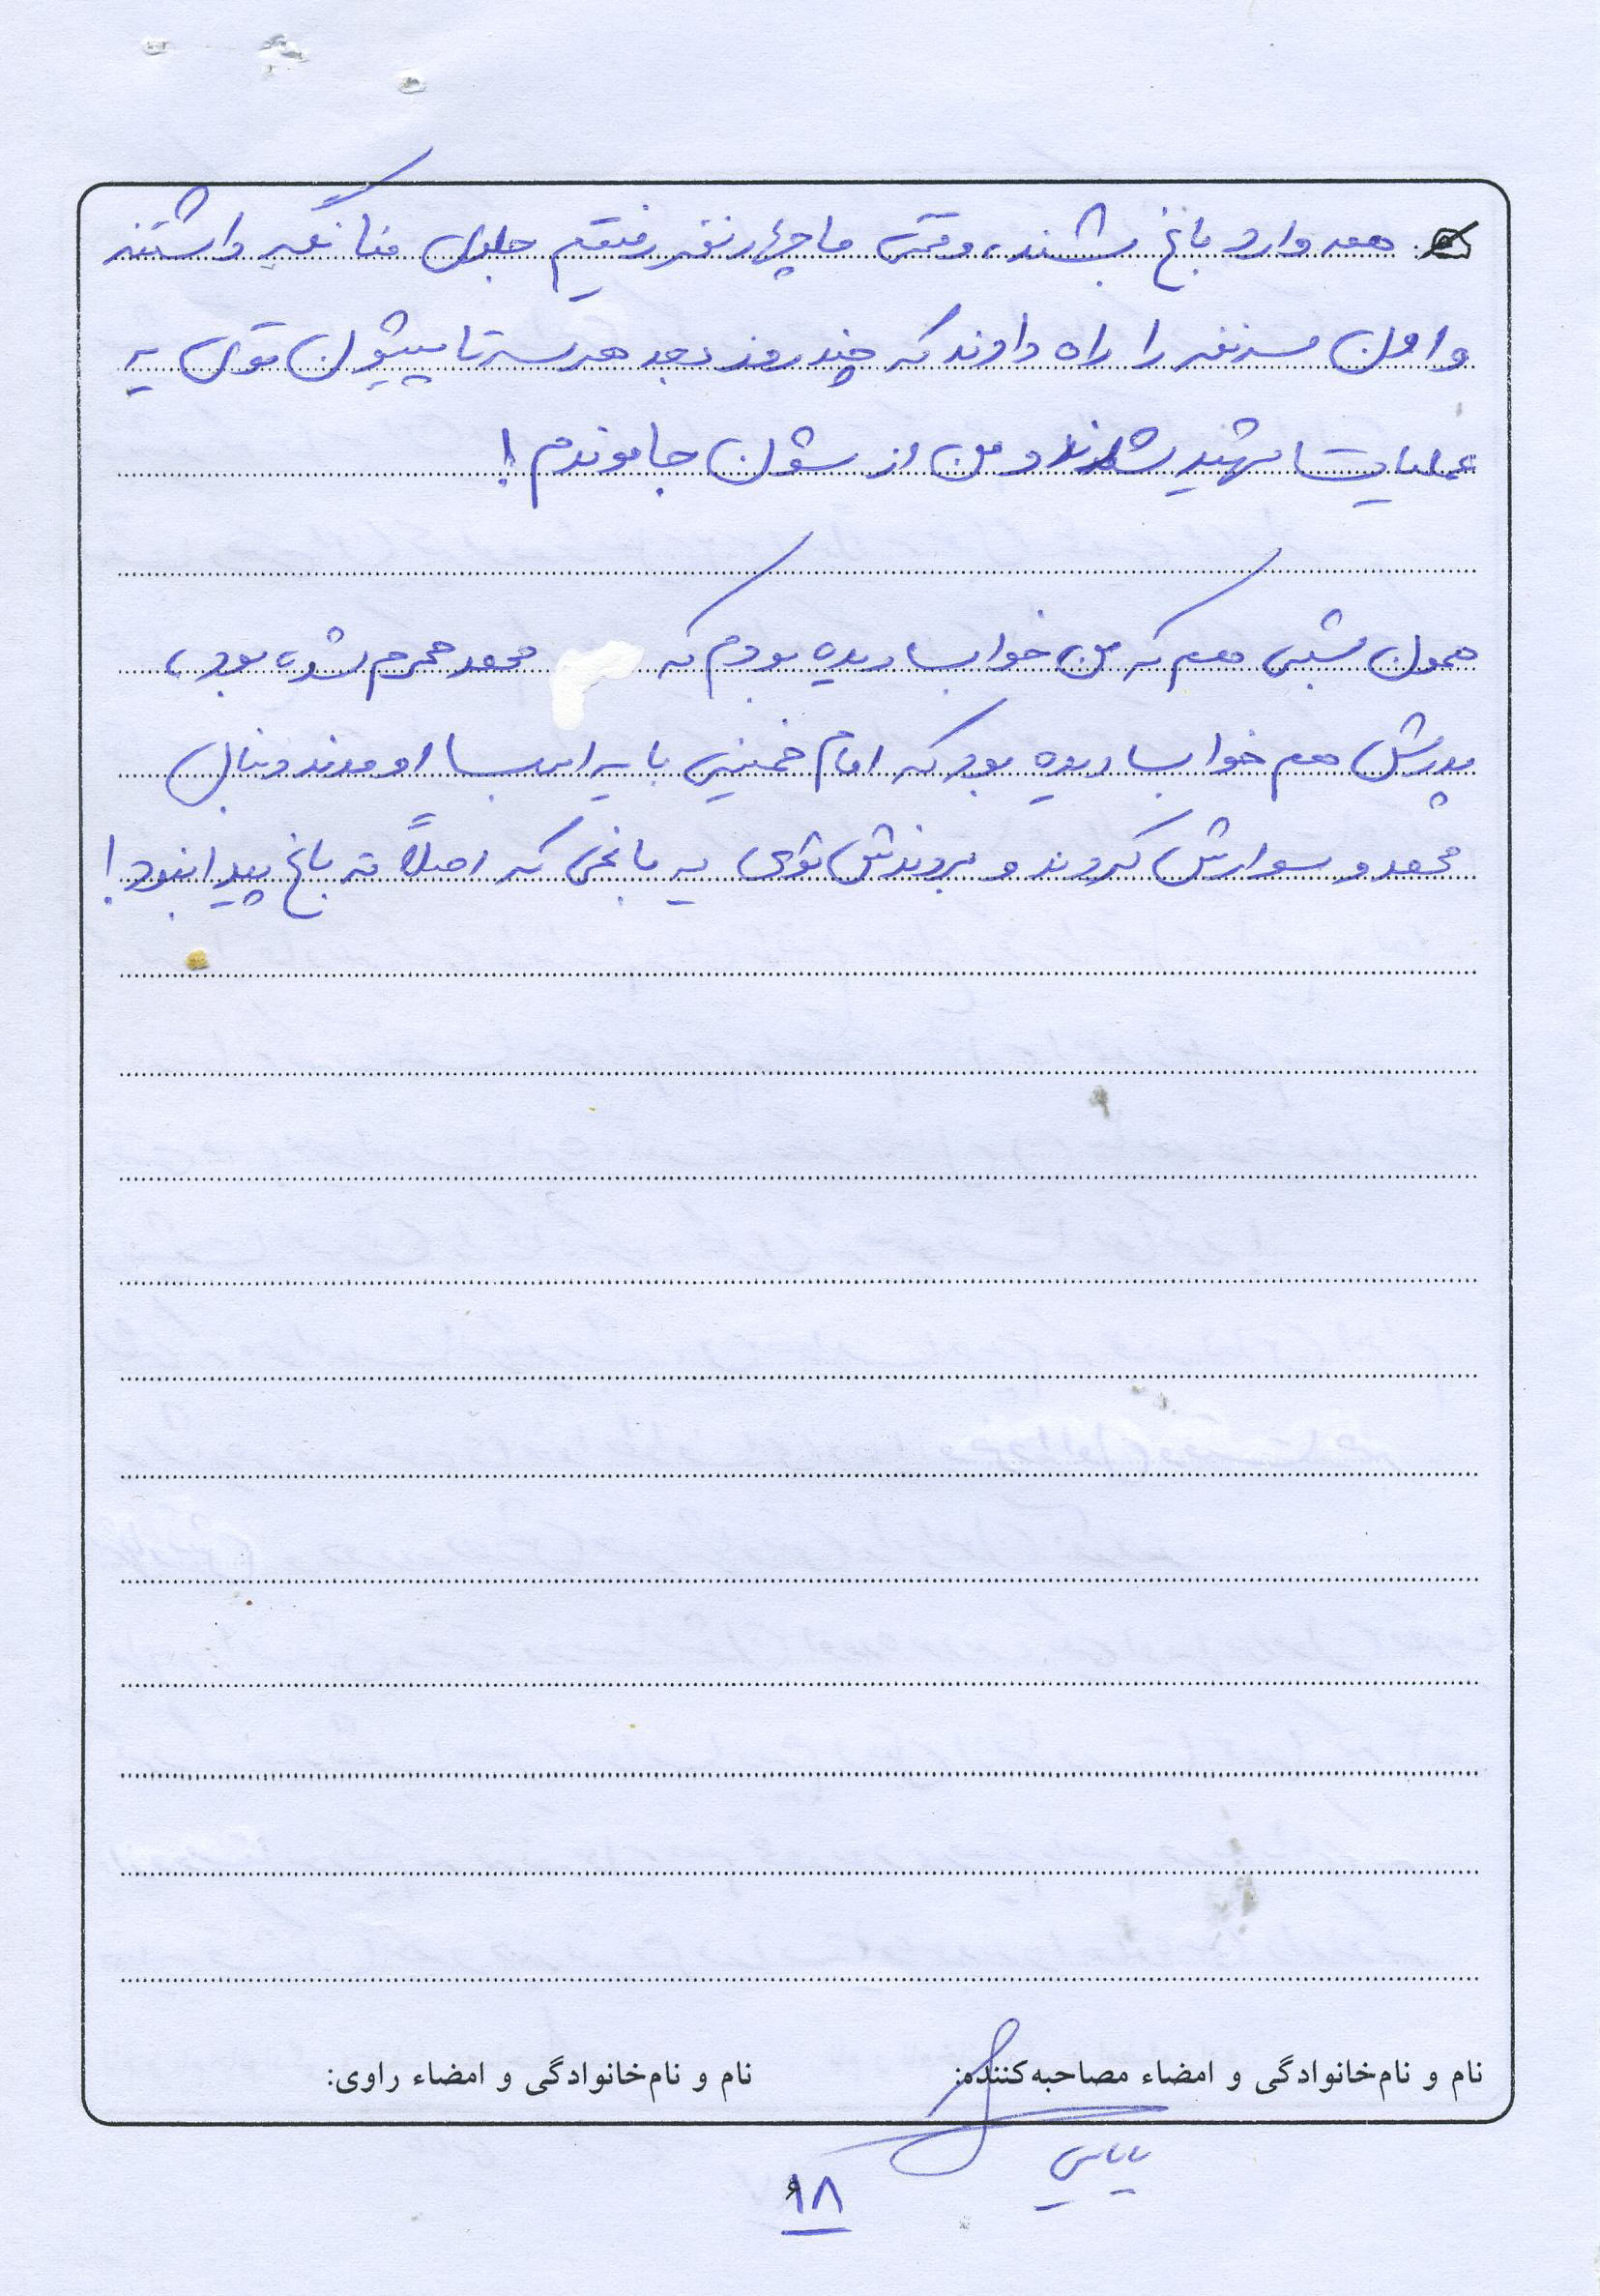 همه وارد باغ بشند، وقتی ما چهار نفر رفتیم جلوی منا نگهبر داشتند
و اون سه نفر را راه دادند که چند روز بعد هر سه تا پیششون توی یه
عملیات شهید شدند و من ازشون جا موندم!
همون شبی هم که من خواب دیده بودم که محمد محرم شده بود،
پدرش هم خواب دیده بود که امام خمینی با یه اسب اومدند دنبال
محمد و سوارش کردند و بردندش توی یه باغی که اصلاً ته باغ پیدا نبود!
نام و نام‌خانوادگی و امضاء مصاحبه‌کننده:
نام و نام‌خانوادگی و امضاء راوی:
بابایی
۱۸